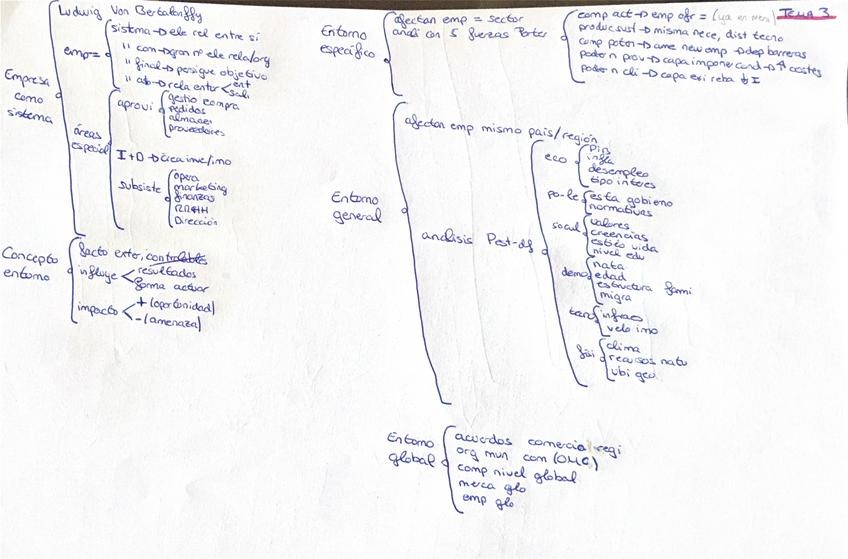 Tema 3
Empresa como sistema
Ludwig Von Bertalanffy
emp=
sistema → ele rel entre sí
" com → gran nº ele rela/org
" final → persigue objetivo
" ab → rela entor < ent
sali
áreas especial
aprovi
gestio compra
pedidos
almacen
proveedores
I+D →
subsiste
opera
marketing
finanzas
RRHH
Dirección
Concepto entorno
facto exter, controlables
influye < resultados
forma actuar
impacto < + (oportunidad)
- (amenaza)
Entorno específico
afectan emp = sector
anali con 5 fuerzas Porter
comp act → emp ofr = (ya en merc)
produc sust → misma nece, dist tecno
comp poten → ame new emp → dep barreras
poder n prov → capa imponer cond → ↑ costes
poder n cli → capa exi reba ↓ I
Entorno general
afectan emp mismo país/región
analisis Pest-df
eco
PIB
infla
desempleo
tipo interes
po-le
esta gobieno
normativas
social
valores
creencias
estilo vida
nivel edu
demo
nata
edad
estructura fami
migra
infraes
velo inno
fisi
clima
recursos natu
ubi geo
Entorno global
acuerdos comercia regi
org mun com (OMC)
comp nivel global
merca glo
emp glo